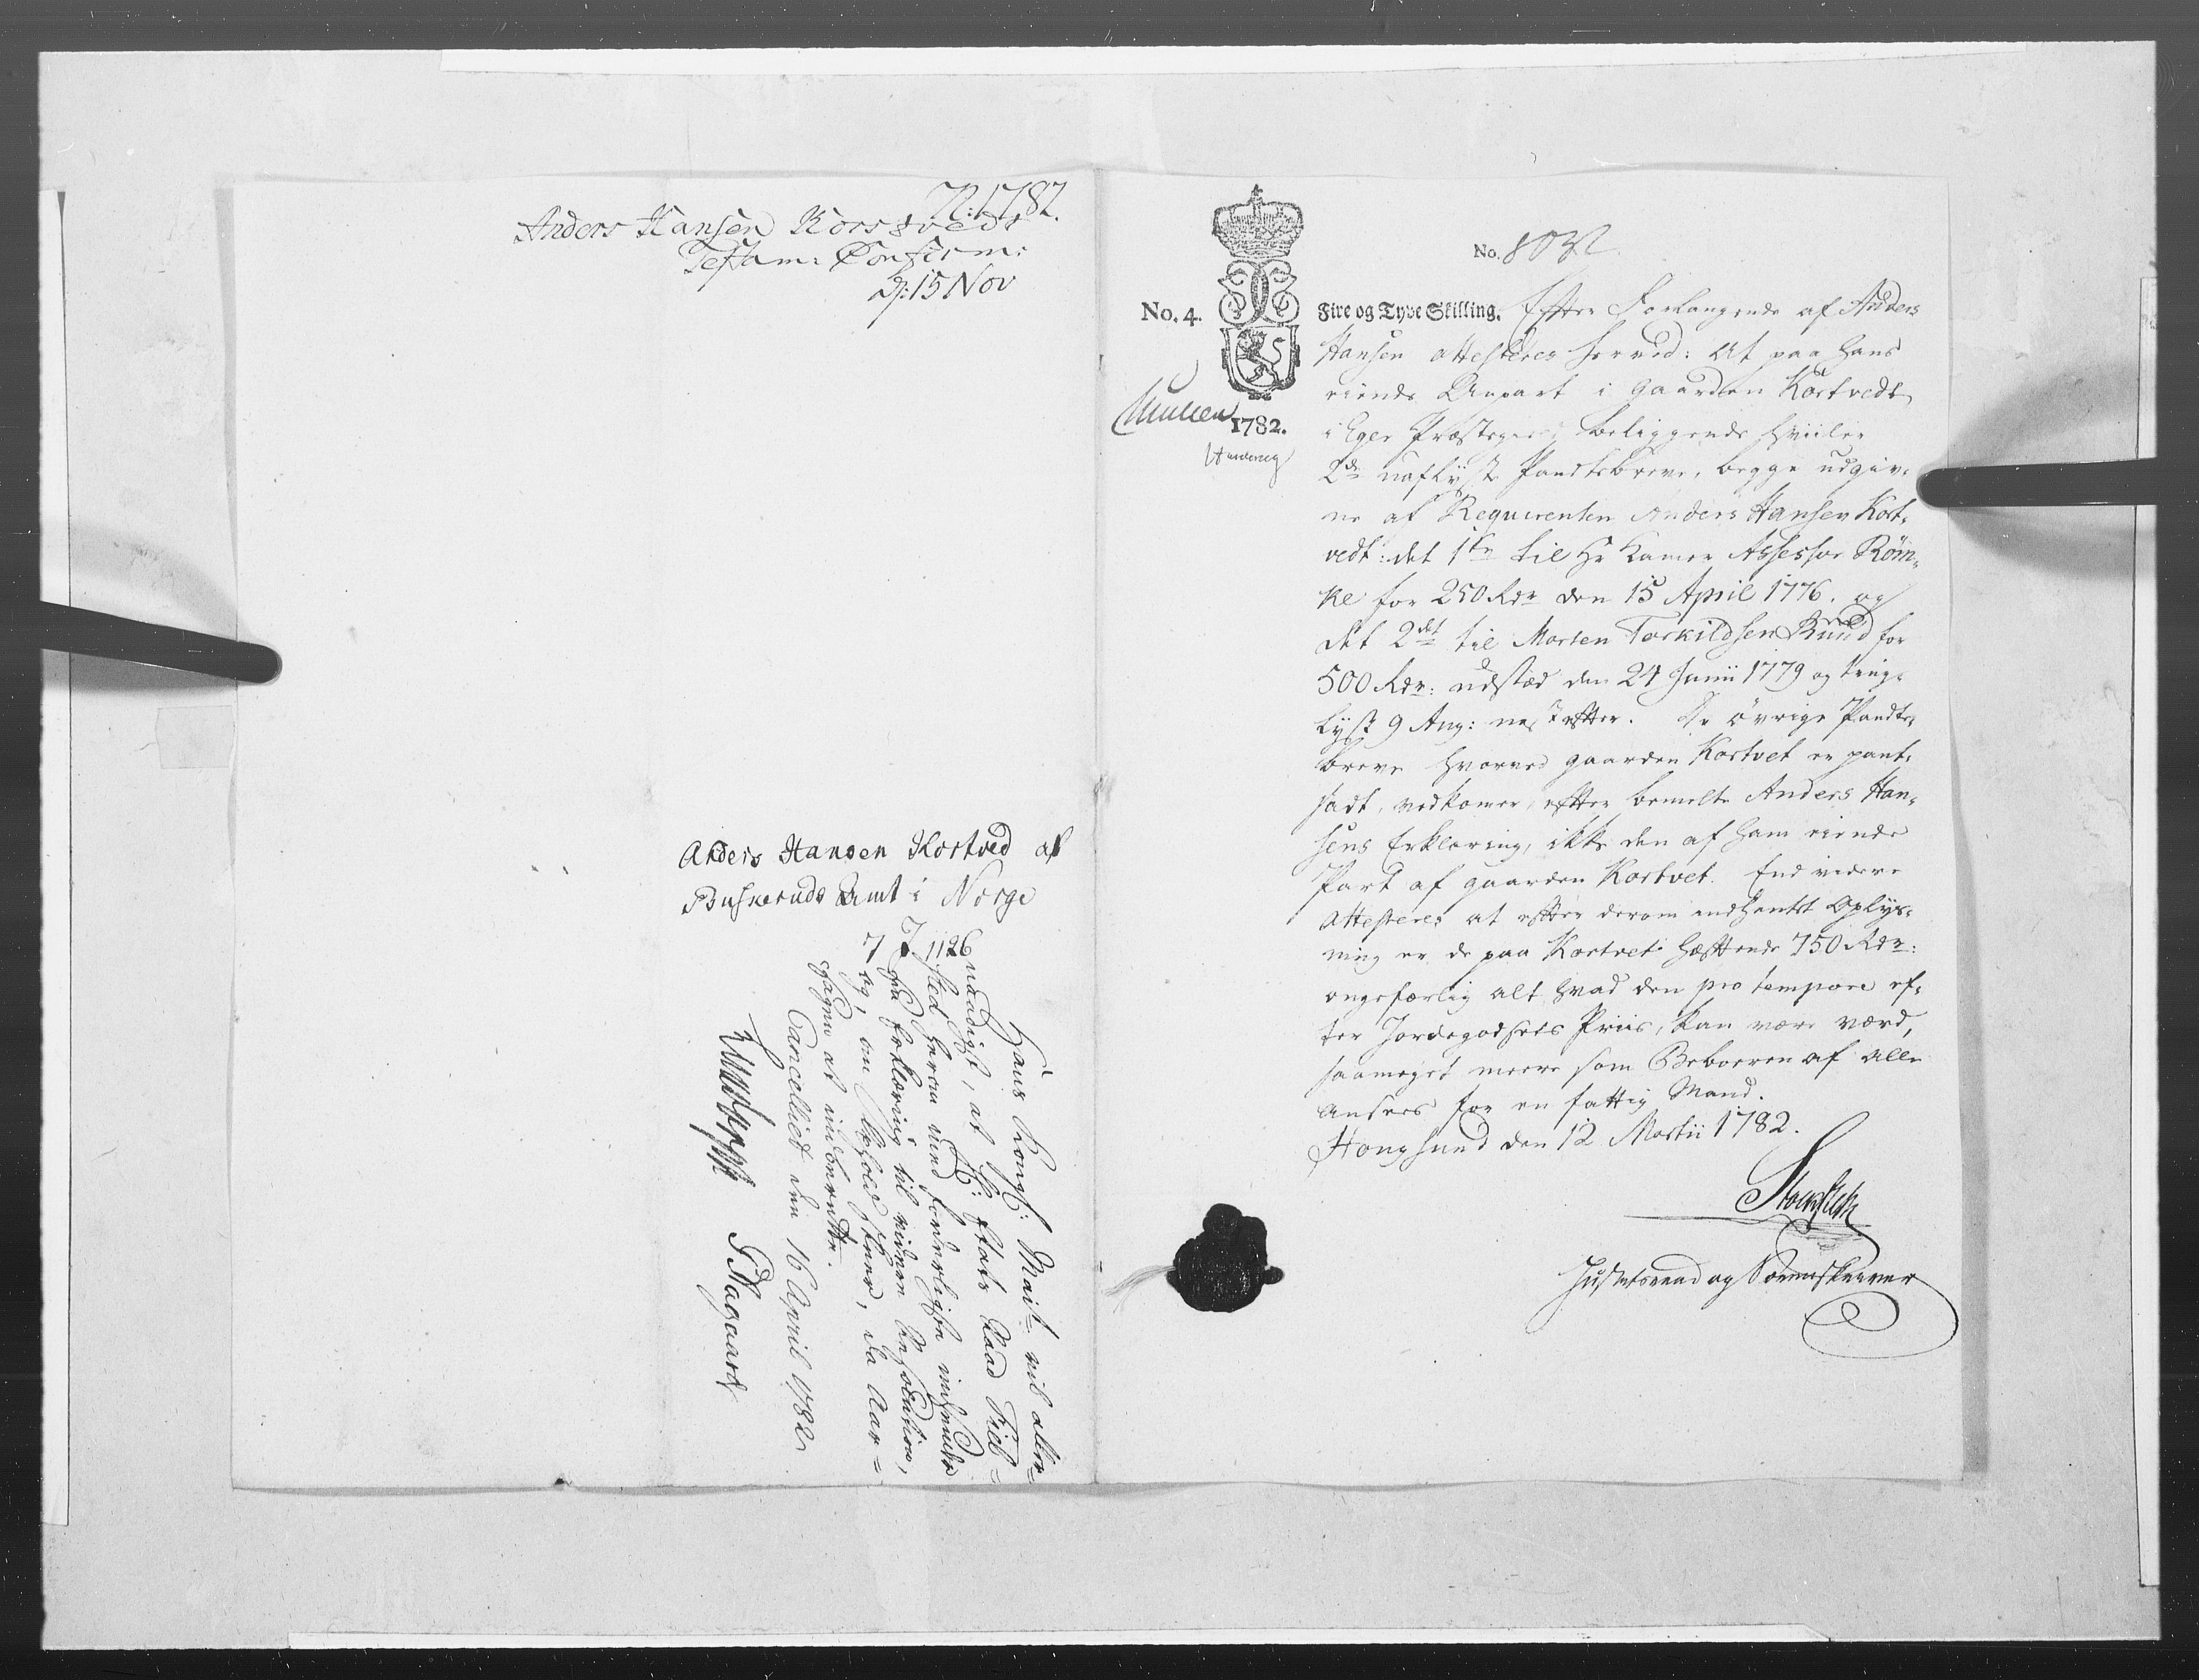 N: 1782.
Anders Hansen Korstvedt
Testam: Confirm:
d: 15 Nov
Anders Hansen Kortved af
Buskeruds Amt i Norge
7 J. 1126
Hans Kongl: Mait vil aller=
naadigst, at Hr: Etats Raad Fiel=
sted herom med forderligste indhenter
sin Erklæring til videre Resolution,
og, om behold skeer, da Aar=
sagen at indberette.
Cancelliet den 16 April 1782
Luxdorph Aagaard
No. 4.
1782.
No. 80
Fire og Tyve Skilling. Efter Forlangende af Anders
Hansen attesteres herved: At paa hans
eiende Anpart i gaarden Kortvedt
i Eger Præstegield beliggende hviiler
2de uaflyste Pandtebreve, begge udgiv=
ne af Requirenten Anders Hansen Kort=
vedt: det 1te til Hr Kamer Assessor Røm=
ke for 250 Rdr den 15 April 1776. og
det 2det til Morten Torkildsen Ruud for
500 Rdr: udstæd den 24 Junii 1779 og ting=
lyst 9 Aug: nest efter. De øvrige Pandte=
breve hvorved gaarden Kortvet er pant=
sadt, vedkomer, efter bemelte Anders Han=
sens Erklæring, ikke den af ham eiende
Part af gaarden Kortvet. End videre
Attesteres at efter derom indhentet Oplys=
ning er de paa Kortvet hæftende 750 Rdr:
ongefærlig alt hvad den pro tempore ef=
ter Jordegodsets Priis, kan være værd,
saameget meere som Beboeren af alle
ansees for en fattig Mand.
Hongsund den 12 Martii 1782.
Stockfleth
Justitsraad og Sorenskriver